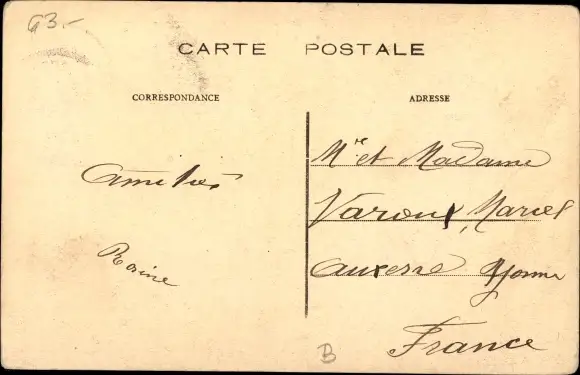 G3.-
CARTE POSTALE
CORRESPONDANCE
ADRESSE
Amitiés
Rosine
Mr et Madame
Varoux, Marcel
Auxerre Yonne
France
B